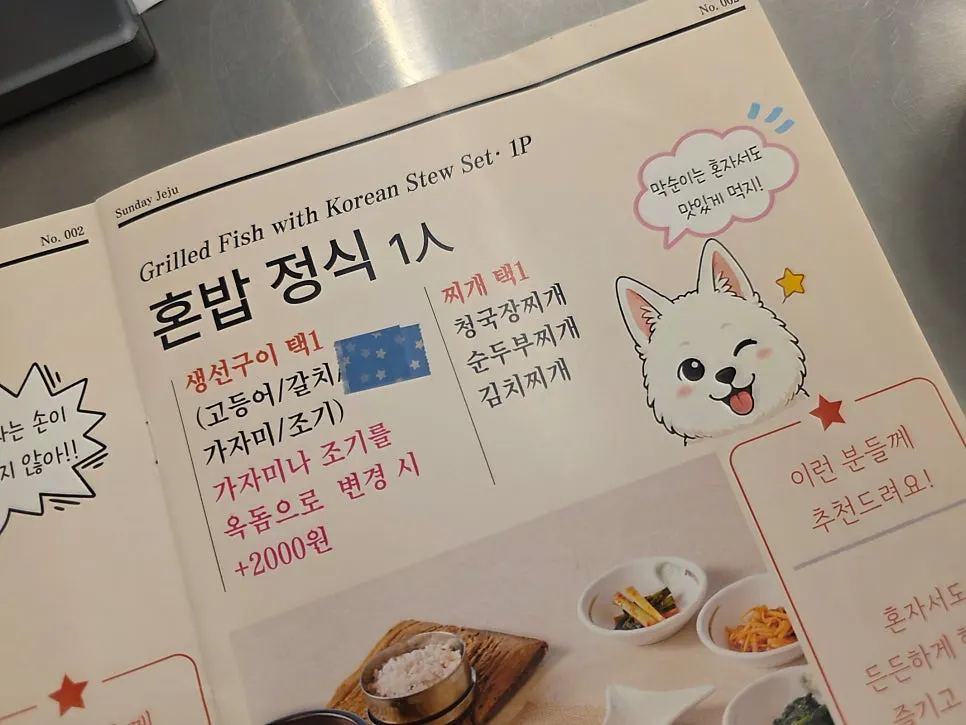 No. 002
나는 손이
지 않아!!
Sunday Jeju
No. 002
Grilled Fish with Korean Stew Set· 1P
혼밥 정식 1人
생선구이 택1
(고등어/갈치/
가자미/조기)
가자미나 조기를
옥돔으로 변경 시
+2000원
찌개 택1
청국장찌개
순두부찌개
김치찌개
막순이는 혼자서도
맛있게 먹지!
이런 분들께
추천드려요!
혼자서도
든든하게
즐기고